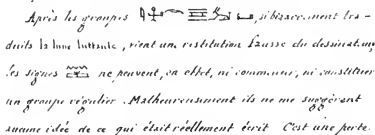 Après les groupes , si bizarrement tra-
duits la lune luttante, vient une restitution fausse du dessinateur,
les signes ne peuvent, en effet, ni commencer, ni constituer
un groupe régulier. Malheureusement ils ne me suggèrent
aucune idée de ce qui était réellement écrit C'est une perte